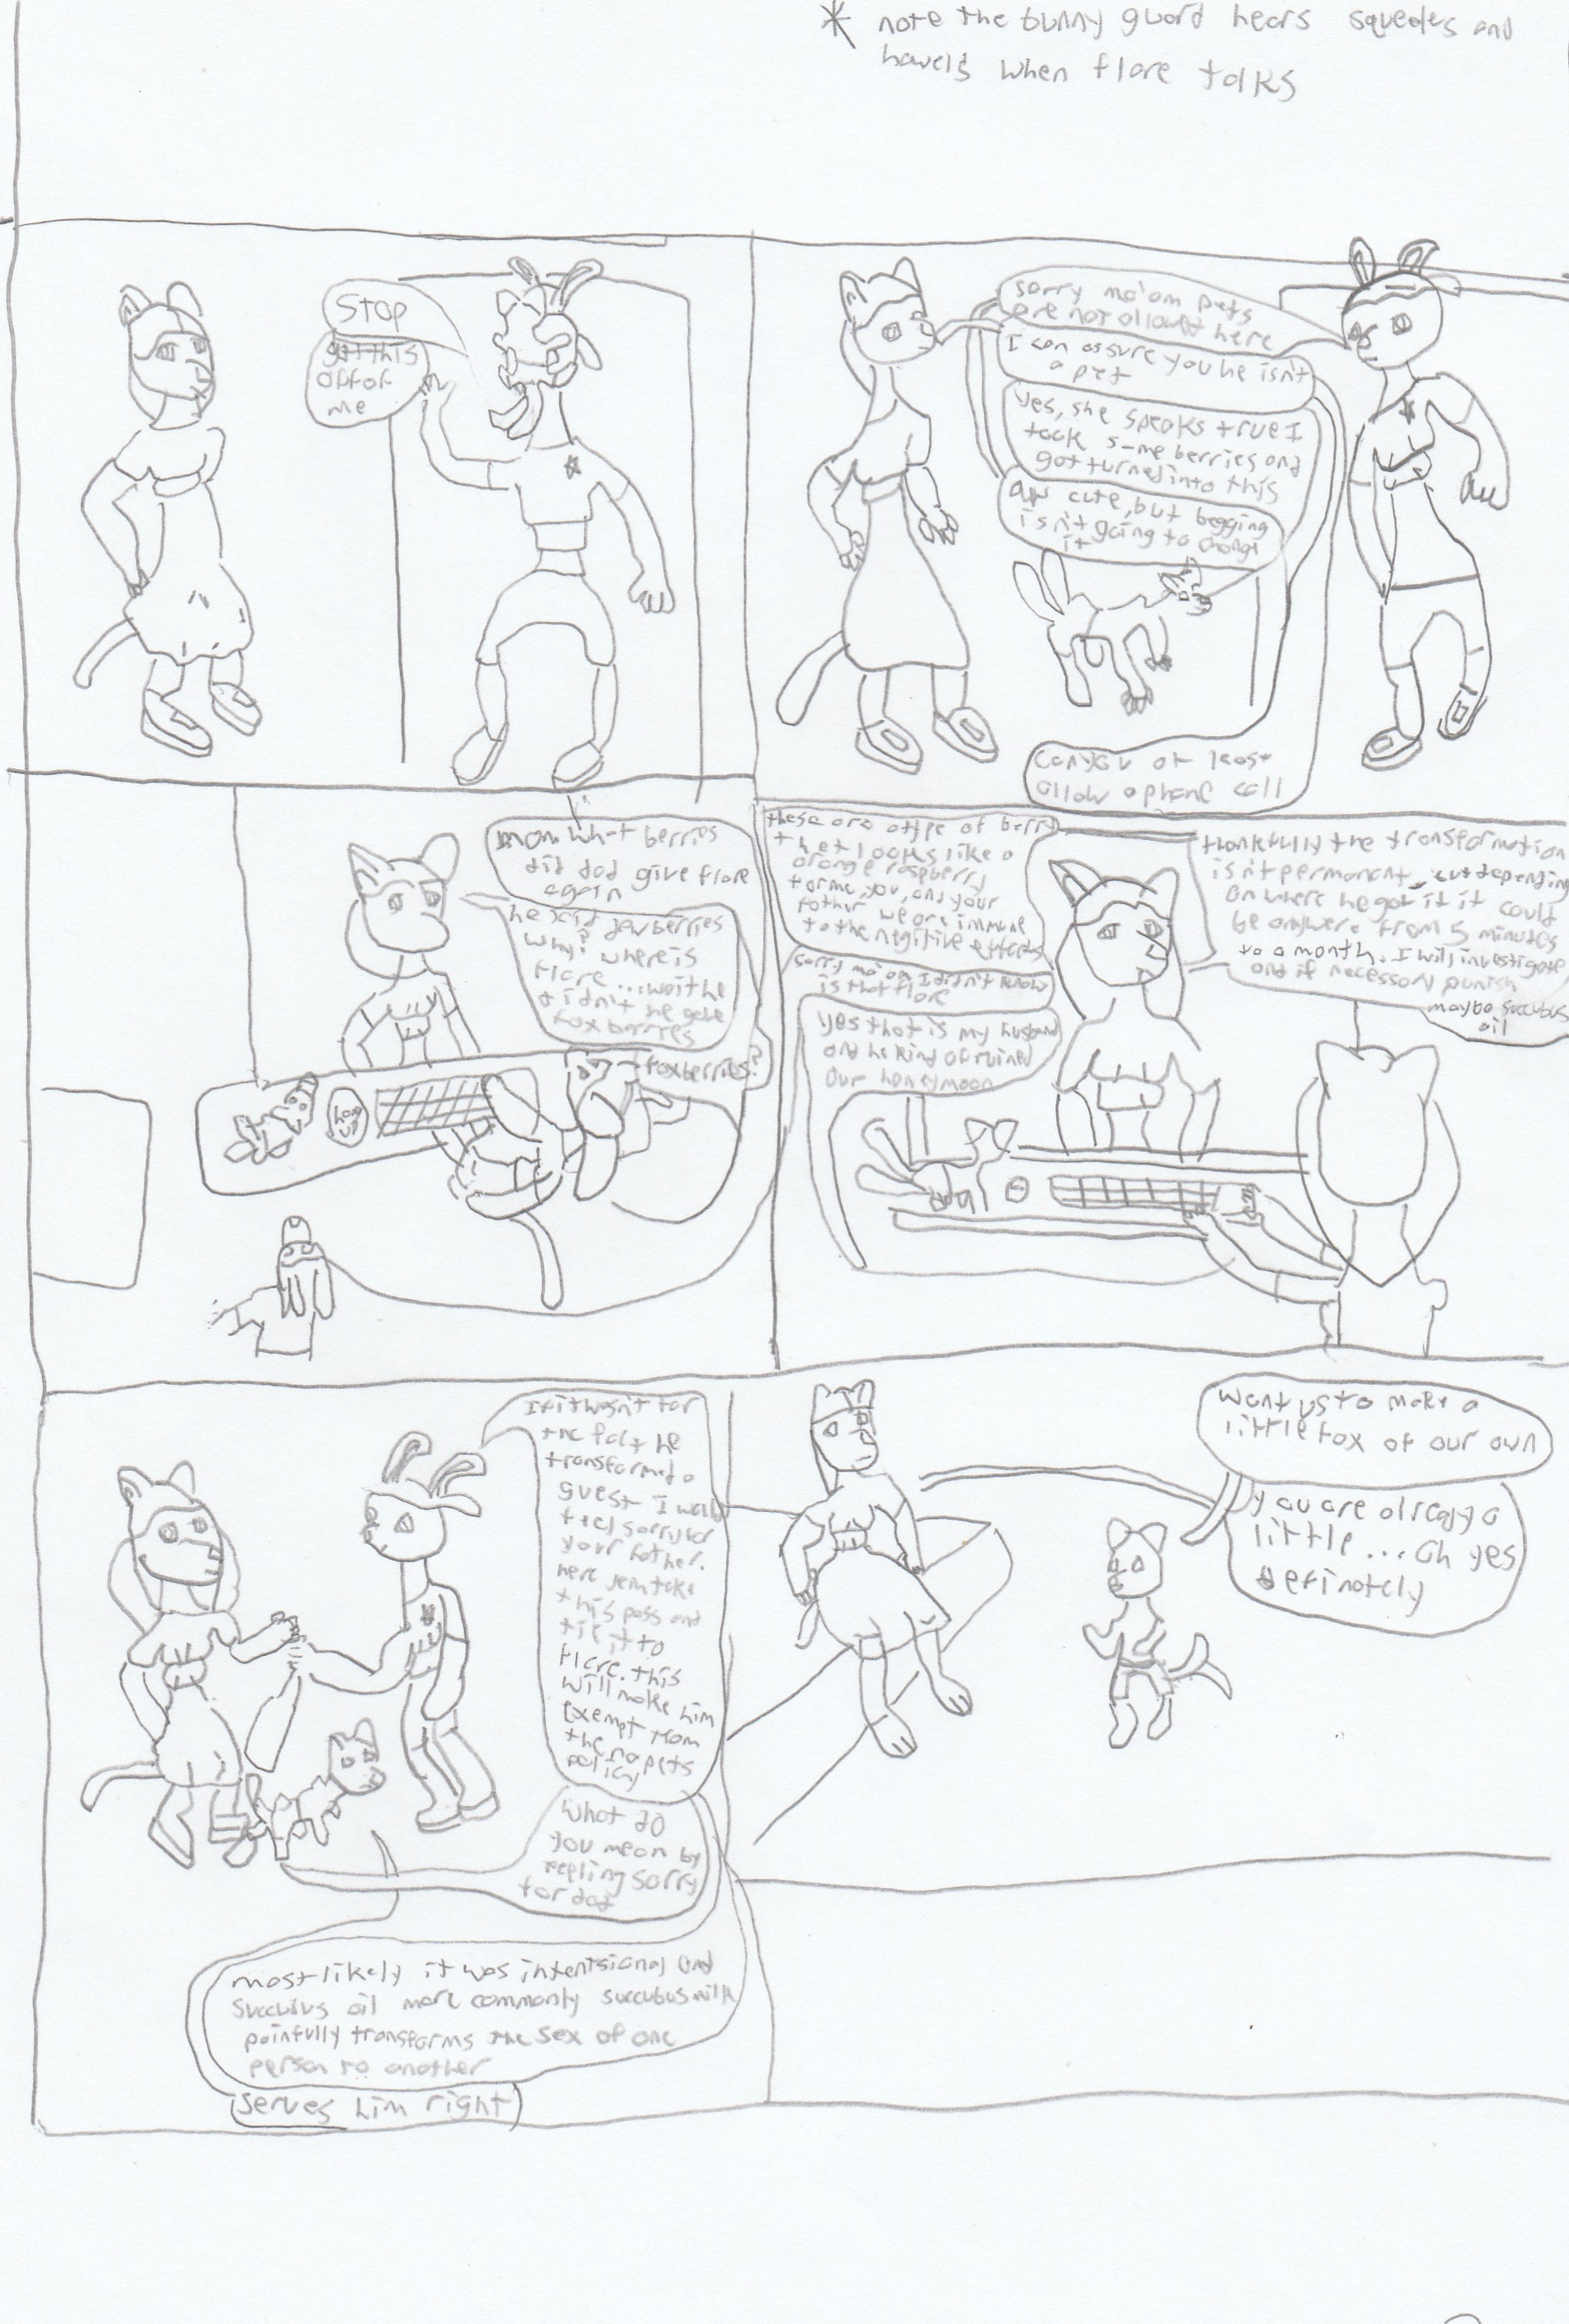 * note the bunny guard hears squeeles and
howels when flare talks
Stop
get this
off of
me
sorry ma'am pets
are not allowed here
I can assure you he isn't
a pet
Yes, she speaks true I
took some berries and
got turned into this
aw cute, but begging
isn't going to change
it
Can you at least
allow a phone call
mom what berries
did dad give flare
again
he said dewberries
why? where is
flare ... wait he
didn't he gave
fox berries
foxberries?
hang
up
these are a type of berry
that looks like a
orange raspberry
for me, you, and your
father we are immune
to the negitive effects
sorry ma'am I didn't know
is that flare
yes that is my husband
and he kind of ruined
our honeymoon
thankfully the transformation
isn't permanent, but depending
on where he got it it could
be anywere from 5 minutes
to a month. I will investigate
and if necessary punish
maybe succubus
oil
If it wasn't for
the fact he
transformed a
guest I would
feel sorry for
your father.
here jem take
this pass and
tie it to
flare. this
will make him
exempt from
the no pets
policy
what do
you mean by
feeling sorry
for dad
most likely it was intentsional and
succubus oil more commonly succubus milk
painfully transforms the sex of one
person to another
serves him right
want us to make a
little fox of our own
you are already a
little ... oh yes
definately